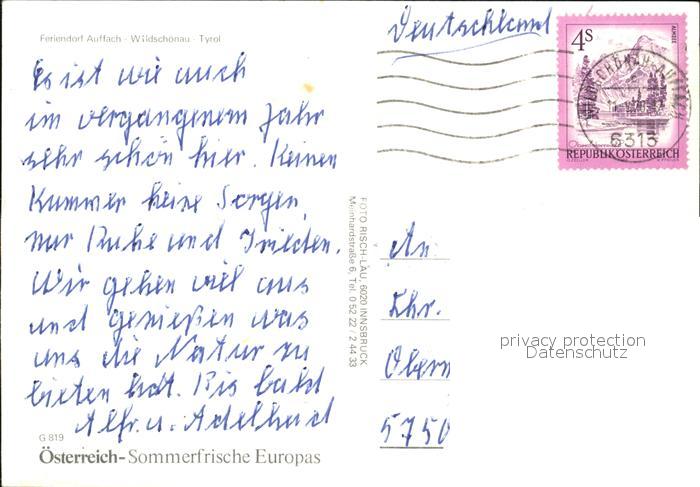 Feriendorf Auffach - Wildschönau - Tyrol
Es ist wie auch
im vergangenem Jahr
sehr schön hier. Keinen
Kummer keine Sorgen,
nur Ruhe und Frieden.
Wir gehen viel aus
und genießen was
uns die Natur zu
bieten hat. Bis bald
Alfr. u. Adelheid
G 819
Österreich-Sommerfrische Europas
FOTO RISCH-LAU, 6020 INNSBRUCK
Meinhardstraße 6, Tel. 0 52 22 / 2 44 33
Deutschland
4S
ALMSEE
6313
REPUBLIK ÖSTERREICH
An
Ehr.
Obern
5750
privacy protection
Datenschutz